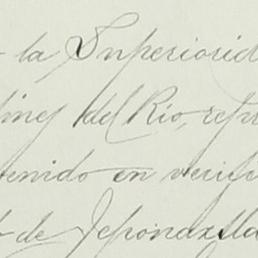 la Superiorid
tinez del Rio, repr
tenido en verifi
de Jeponaxtla